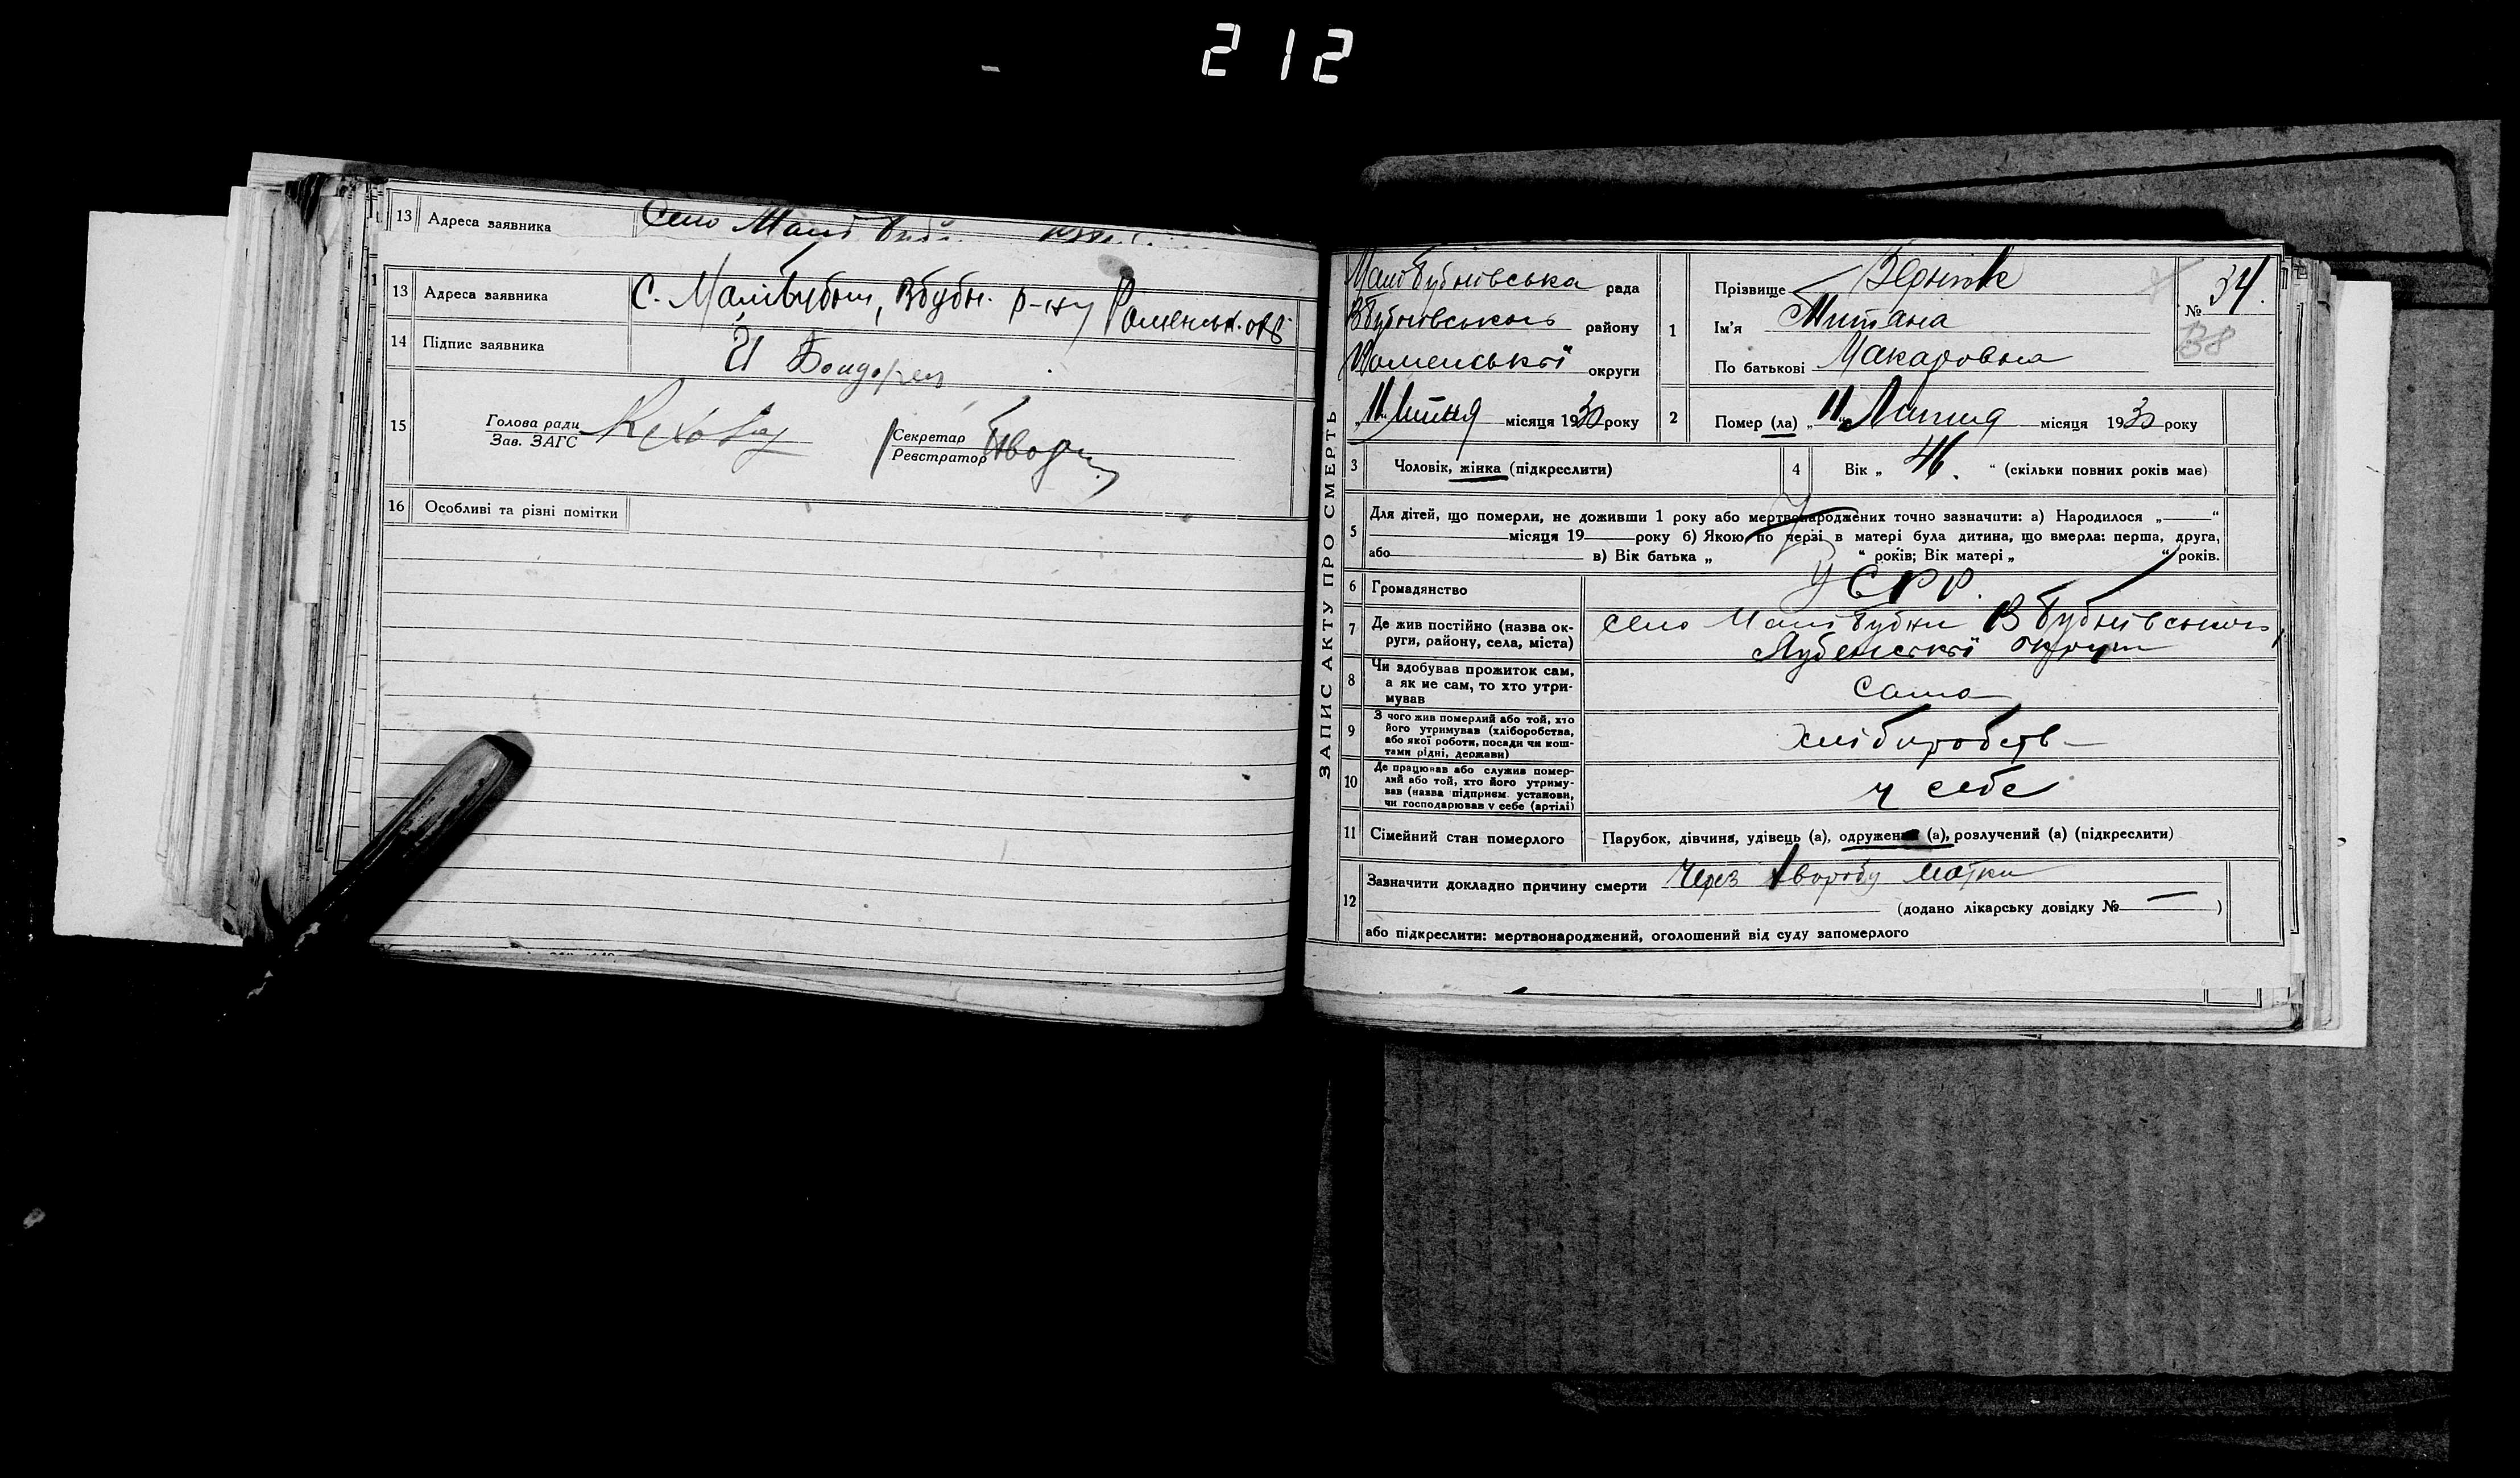 212
13 Адреса заявника Село Малі Буб
13 Адреса заявника с. Малі Бубни, Вбубн. р-ну Роменськ. окр
14 Підпис заявника И Бондарен
15 Голова ради
Зав. ЗАГС
Секретар
Реєстратор
16 Особливі та різні помітки
ЗАПИС АКТУ ПРО СМЕРТЬ
МалоБубнівська рада
ВБубнівського району
Роменської округи
„11„ Липня місяця 1930 року
1 Прізвище
Ім'я Титяна
По батькові Макаровна
№ 34.
38
2 Помер (ла) „11„ Липня місяця 1930 року
3 Чоловік, жінка (підкреслити)
4 Вік „ 46. “ (скільки повних років має)
5 Для дітей, що померли, не доживши 1 року або мертвонароджених точно зазначити: а) Народилося „ “
місяця 19 року б) Якою по черзі в матері була дитина, що вмерла: перша, друга,
або в) Вік батька „ “ років; Вік матері „ “ років.
6 Громадянство УСРР.
7 Де жив постійно (назва округи, району, села, міста) село Малі Бубни ВБубнівського,
округи
8 Чи здобував прожиток сам,
а як не сам, то хто утри-
мував
сама
9 З чого жив померлий або той, хто
його утримував (хліборобства,
або якої роботи, посади чи кош-
тами рідні, держави)
хліборобств
10 Де працював або служив помер-
лий або той, хто його утриму-
вав (назва підприєм. установи,
чи господарював у себе (артілі)
у себе
11 Сімейний стан померлого Парубок, дівчина, удівець (а), одружений (а), розлучений (а) (підкреслити)
12 Зазначити докладно причину смерти Через хворобу матки
(додано лікарську довідку № — )
або підкреслити: мертвонароджений, оголошений від суду запомерлого